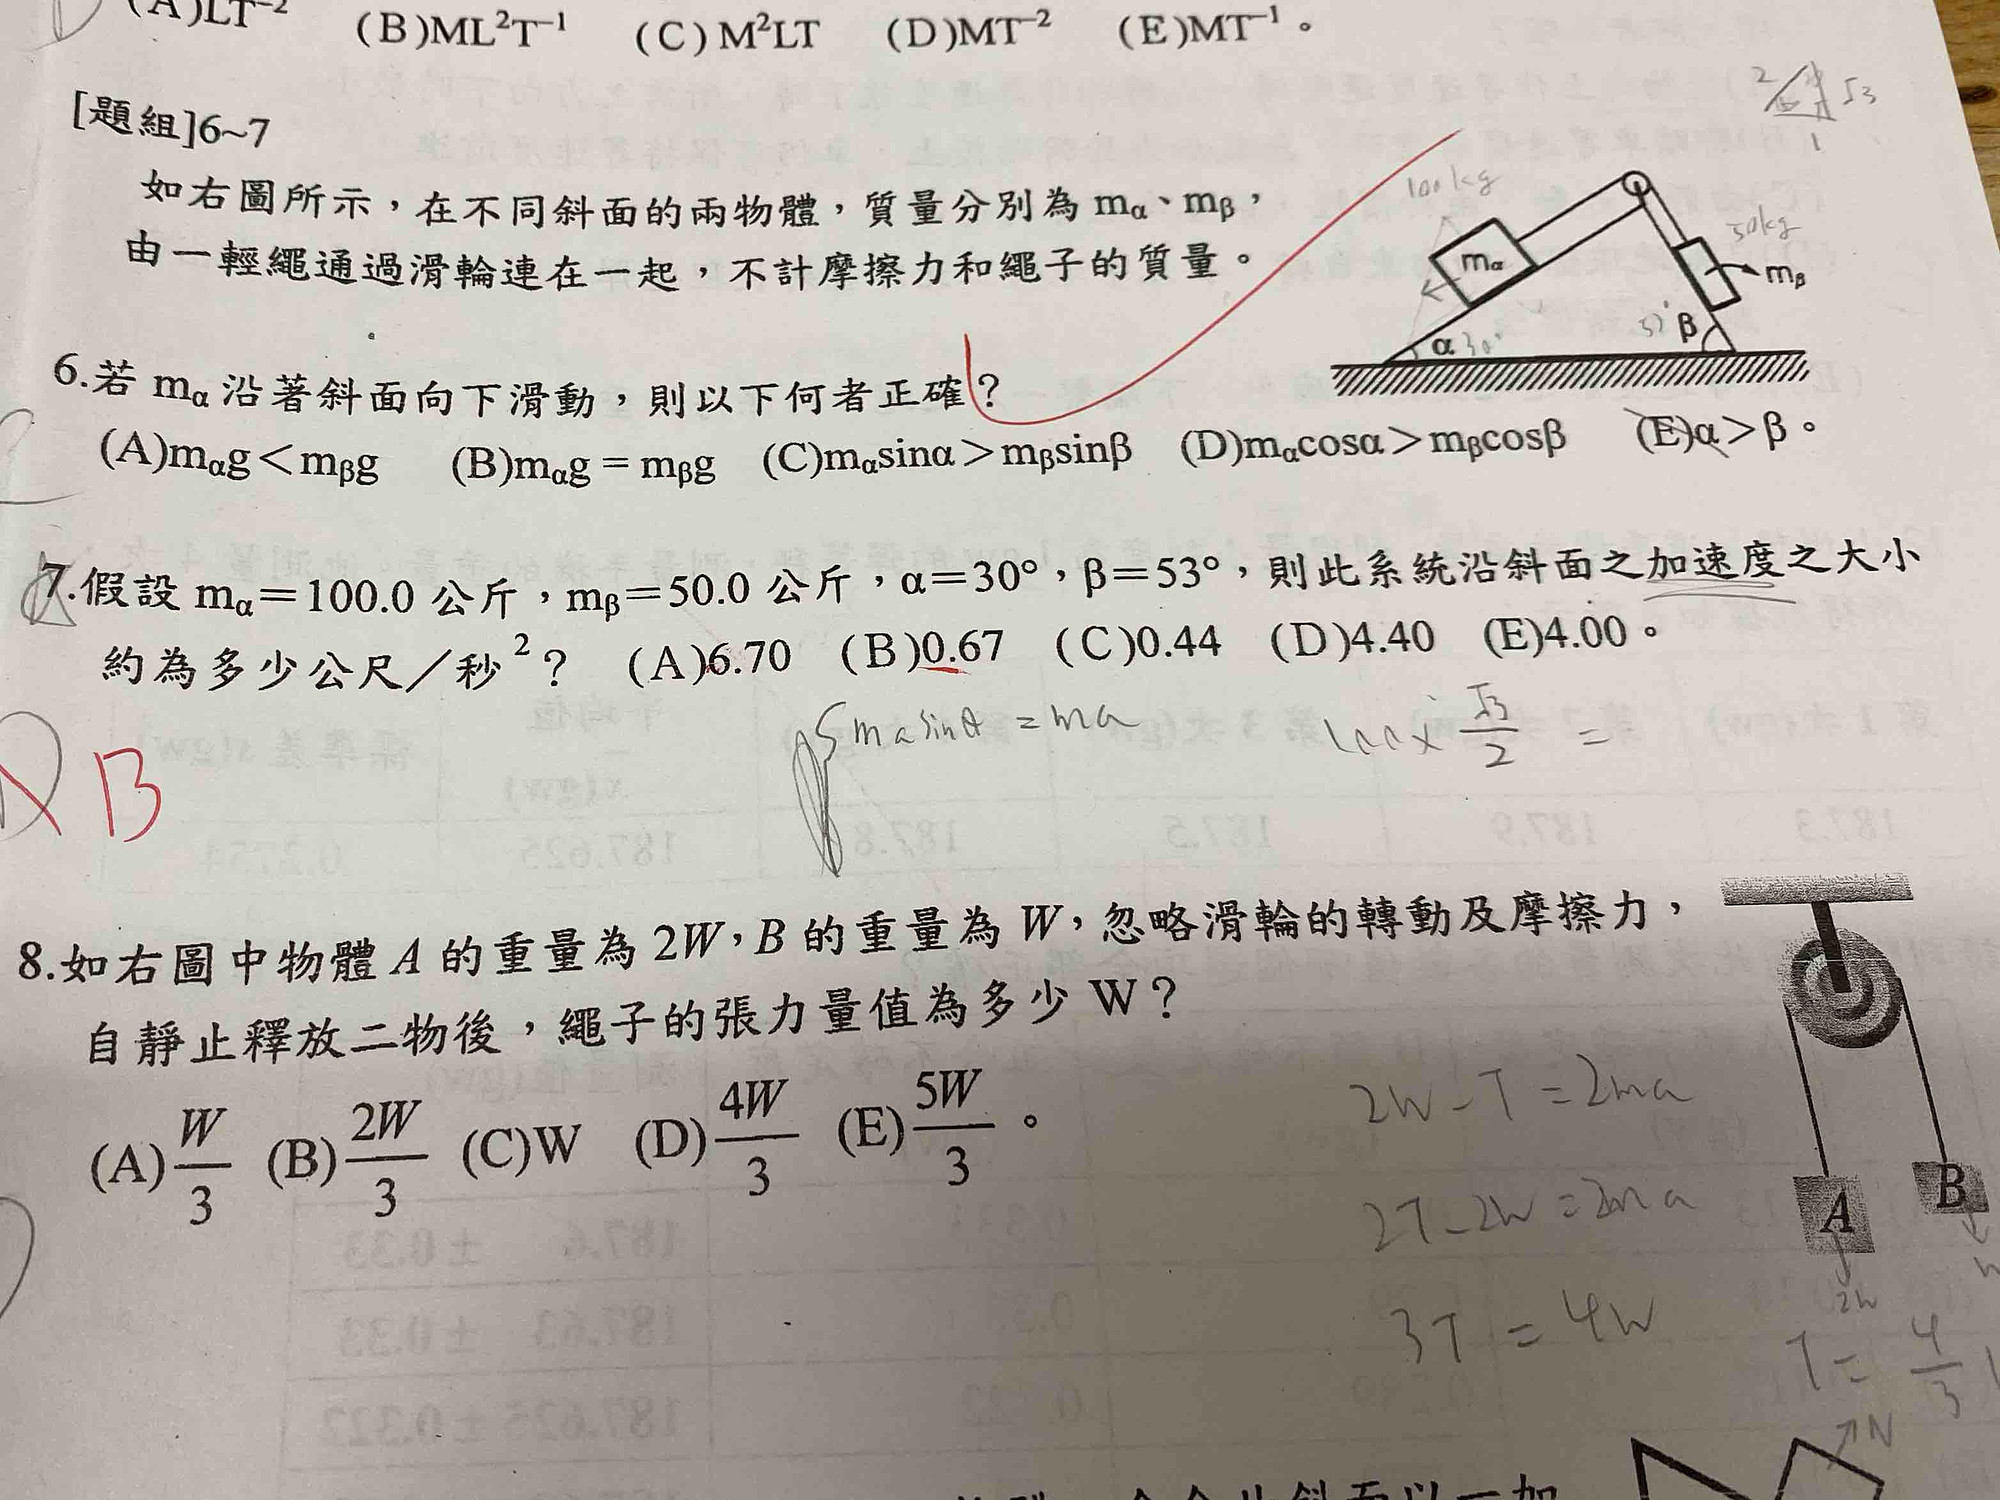 (A)LT⁻² (B)ML²T⁻¹ (C)M²LT (D)MT⁻² (E)MT⁻¹。
[題組]6~7
如右圖所示，在不同斜面的兩物體，質量分別為 mα、mβ，
由一輕繩通過滑輪連在一起，不計摩擦力和繩子的質量。
2 √3
1
100kg
50kg
mα
mβ
α 30°
53° β
6.若 mα 沿著斜面向下滑動，則以下何者正確？
(A)mαg＜mβg (B)mαg＝mβg (C)mαsinα＞mβsinβ (D)mαcosα＞mβcosβ (E)α＞β。
7.假設 mα＝100.0 公斤，mβ＝50.0 公斤，α＝30°，β＝53°，則此系統沿斜面之加速度之大小
約為多少公尺／秒²？ (A)6.70 (B)0.67 (C)0.44 (D)4.40 (E)4.00。
B
sinθ = ma
100× √3/2 =
8.如右圖中物體 A 的重量為 2W，B 的重量為 W，忽略滑輪的轉動及摩擦力，
自靜止釋放二物後，繩子的張力量值為多少 W？
(A)W/3 (B)2W/3 (C)W (D)4W/3 (E)5W/3。
2W - T = 2ma
2T - 2W = 2ma
3T = 4W
A
B
2W
T = 4/3
N